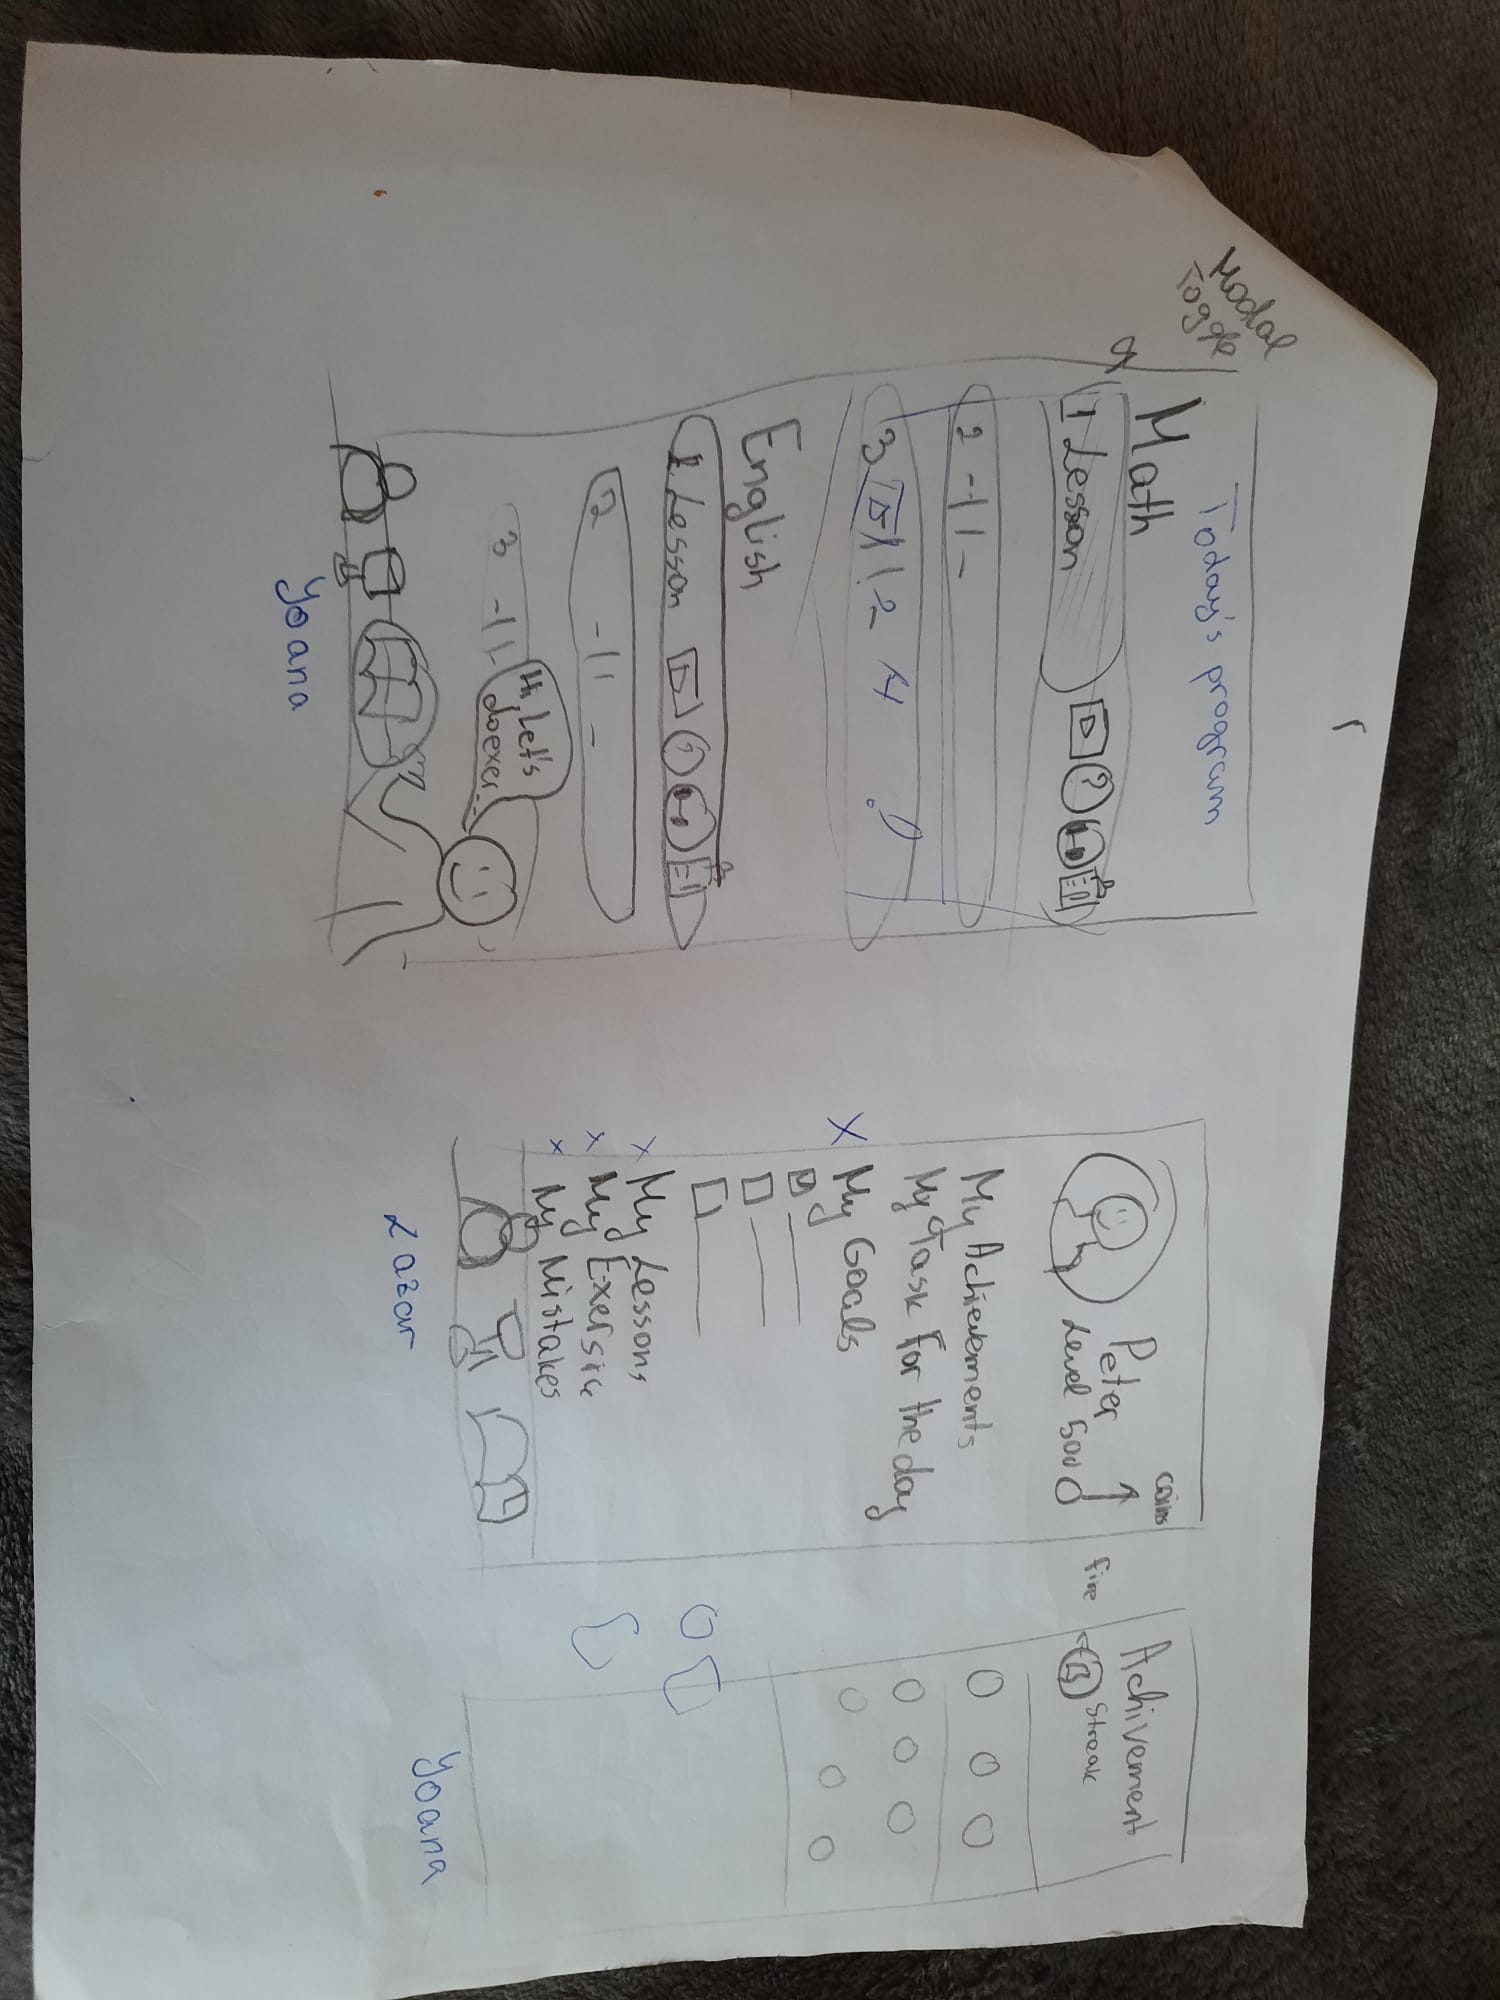 Modal
Toggle
Today's proogram
Math
1 Lesson
?
2 -11-
3
English
1. Lesson
?
2 -11-
3 -11-
Hi, Let's
do exer
Yoana
coins
Peter
Level 500
My Achievements
My Task For the day
X My Goals
x My Lessons
x My Exersic
x My Mistakes
Lazar
Achivement
fire
Streak
Yoana